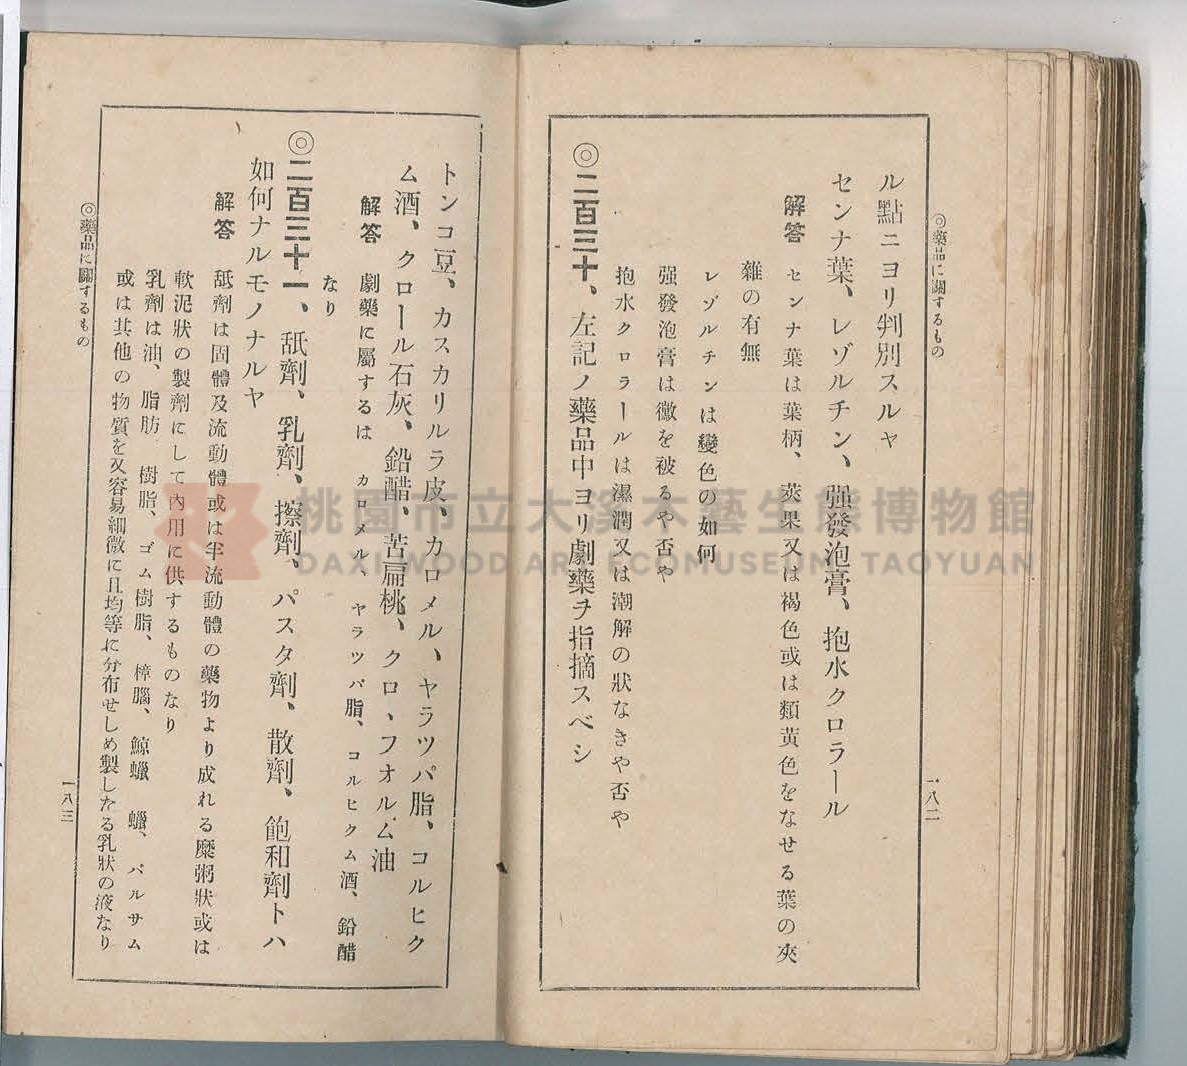 ◎藥品に關するもの
一八二
ル點ニヨリ判別スルヤ
センナ葉、レゾルチン、强發泡膏、抱水クロラール
解答 センナ葉は葉柄、莢果又は褐色或は類黃色をなせる葉の夾
雜の有無
レゾルチンは變色の如何
强發泡膏は黴を被るや否や
抱水クロラールは濕潤又は潮解の狀なきや否や
◎二百三十、左記ノ藥品中ヨリ劇藥ヲ指摘スベシ
トンコ豆、カスカリルラ皮、カロメル、ヤラツパ脂、コルヒク
ム酒、クロール石灰、鉛醋、苦扁桃、クロ、フオルム油
解答 劇藥に屬するは カロメル、ヤラツパ脂、コルヒクム酒、鉛醋
なり
◎二百三十一、舐劑、乳劑、擦劑、パスタ劑、散劑、飽和劑トハ
如何ナルモノナルヤ
解答 舐劑は固體及流動體或は半流動體の藥物より成れる糜粥狀或は
軟泥狀の製劑にして內用に供するものなり
乳劑は油、脂肪 樹脂、ゴム樹脂、樟腦、鯨蠟 蠟、バルサム
或は其他の物質を又容易細微に且均等に分布せしめ製したる乳狀の液なり
◎藥品に關するもの
一八三
桃園市立大溪木藝生態博物館
DAXI WOOD ART ECOMUSEUM TAOYUAN